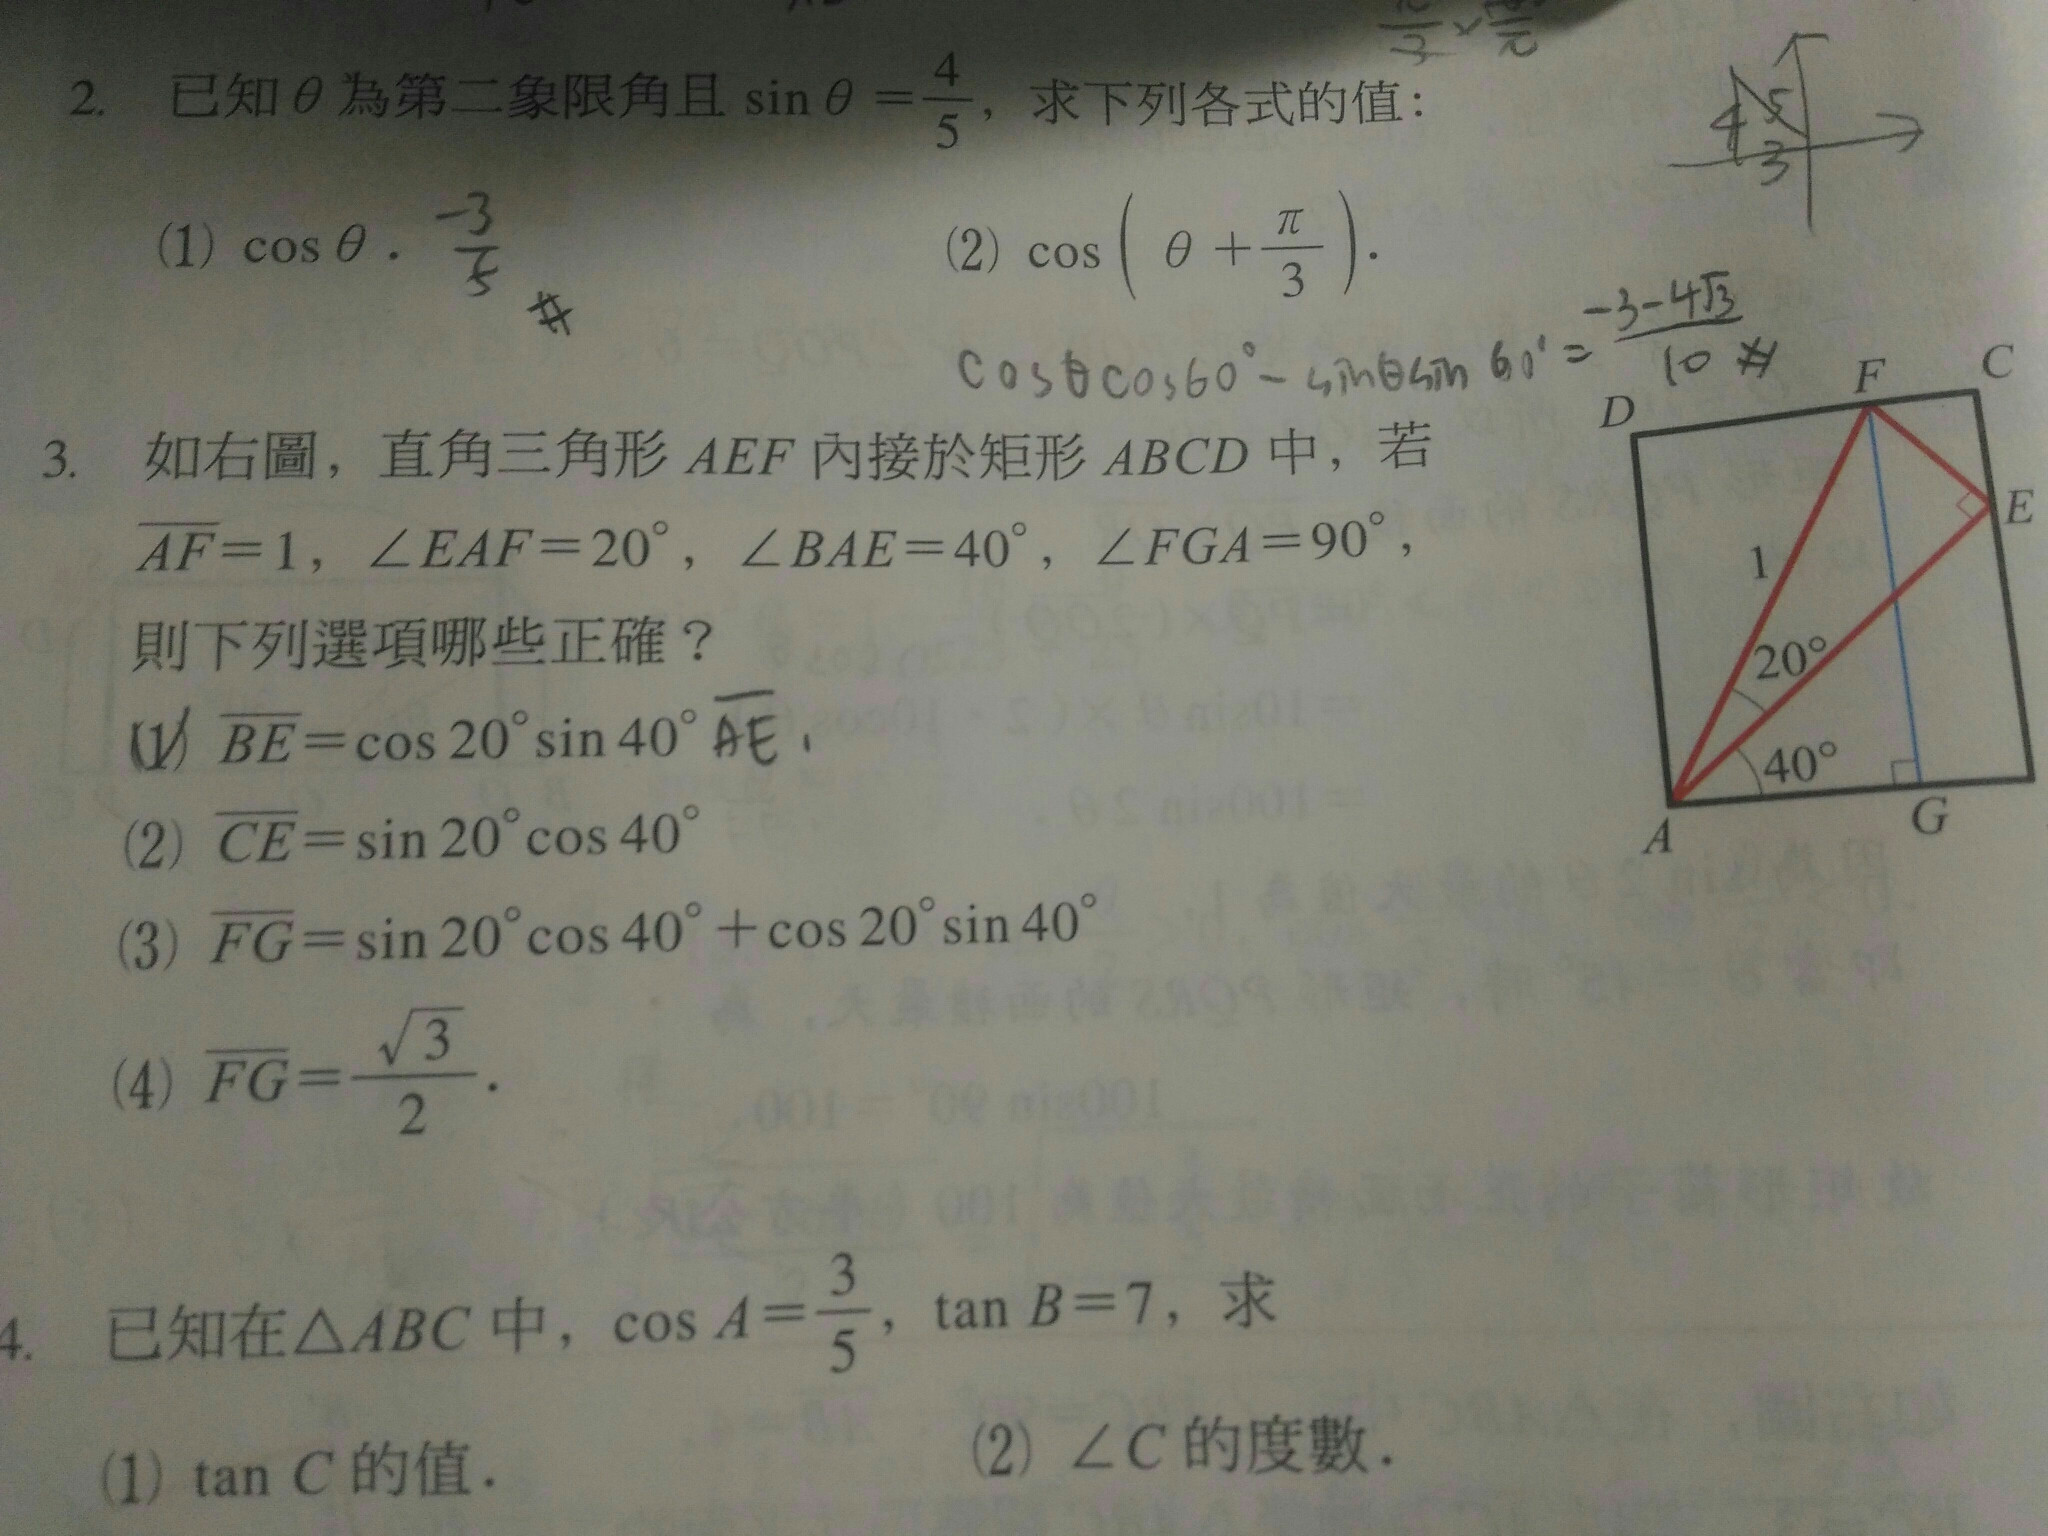 2. 已知θ為第二象限角且 sin θ = 4/5, 求下列各式的值:
4 5 3
(1) cos θ. -3/5 #
(2) cos ( θ + π/3 ).
cosθcos60° - sinθsin 60° = -3-4√3/10 #
3. 如右圖, 直角三角形 AEF 內接於矩形 ABCD 中, 若
AF=1, ∠EAF=20°, ∠BAE=40°, ∠FGA=90°,
則下列選項哪些正確?
(1) BE=cos 20°sin 40° AE,
(2) CE=sin 20°cos 40°
(3) FG=sin 20°cos 40°+cos 20°sin 40°
(4) FG=√3/2.
D F C
E
1
20°
40°
A G
4. 已知在△ABC 中, cos A=3/5, tan B=7, 求
(1) tan C 的值.
(2) ∠C 的度數.